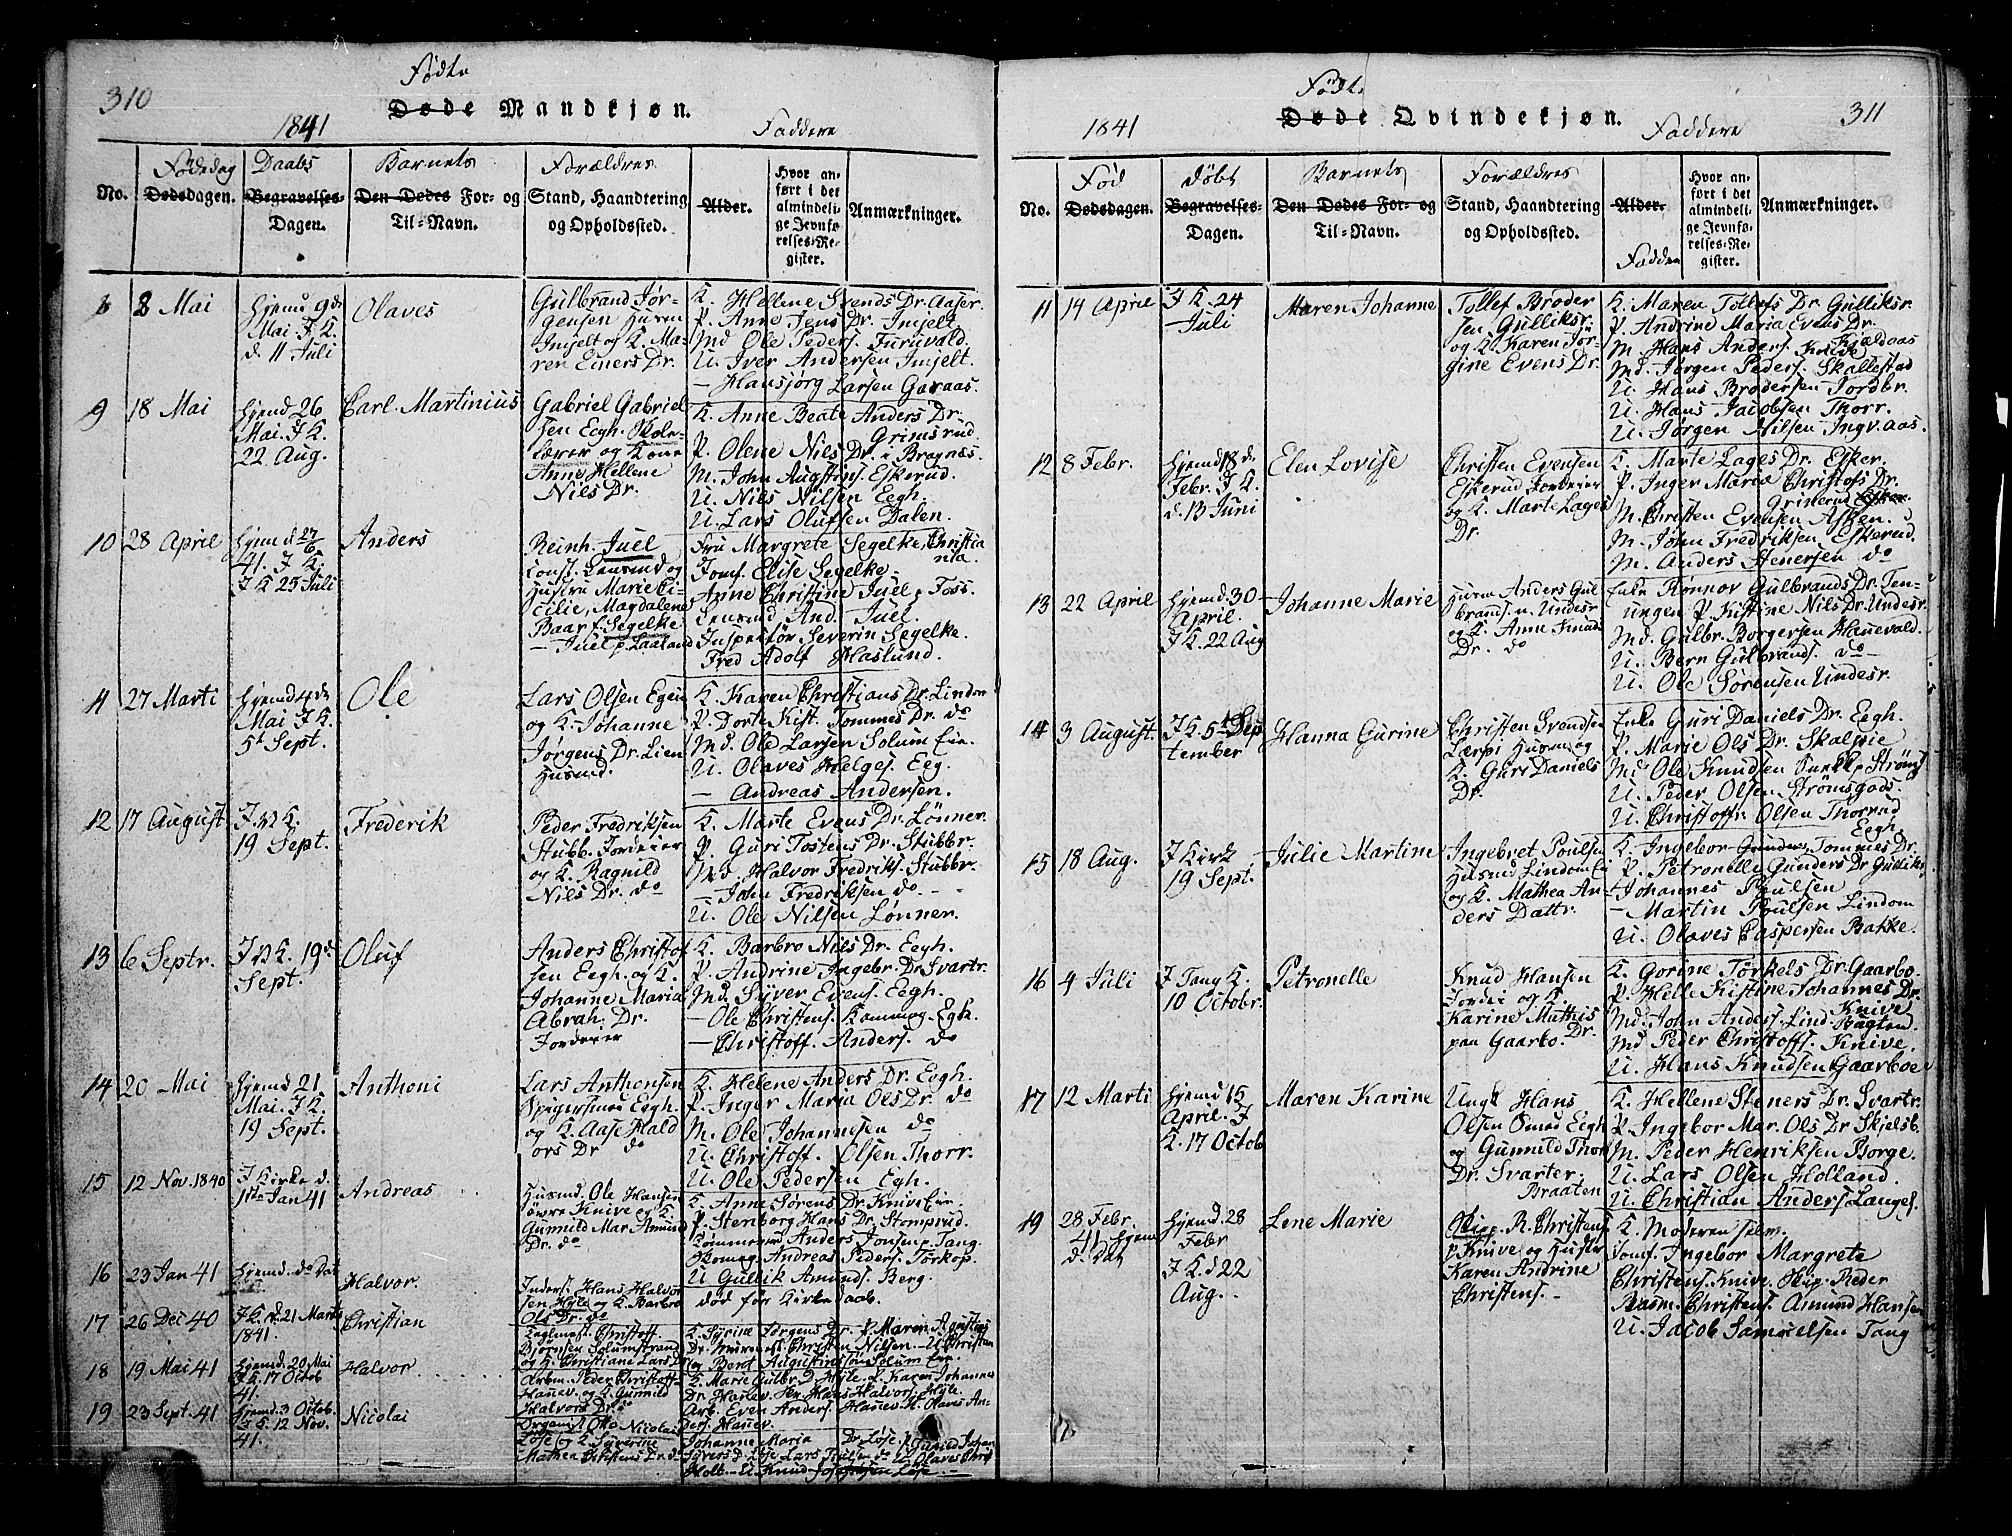 310
Fødte
Døde Mandkjøn.
1841
Faddere
No.
Fødedag
Dødsdagen.
Daabs
Begravelses-
Dagen.
Barnets
Den Dødes For- og
Til-Navn.
Forældres
Stand, Haandtering
og Opholdssted.
Alder.
Hvor an-
ført i det
almindeli-
ge Jevnfø-
relses-Re-
gister.
Anmærkninger.
8 Mai
Hjemd 9de
Mai. I K.
d. 11 Juli
Olaves
Gulbrand Jør-
gensen Husen
Imjelt og K. Ma-
ren Einers Dr.
K. Hellene Svends Dr. Aaser
P. Anne Jens Dr. Imjelt
Md Ole Peders. Furuvald.
U. Iver Andersen Imjelt.
— Hansjørg Larsen Garaas.
9
18 Mai
Hjemd. 26
Mai. I K.
22 Aug.
Carl Martinius
Gabriel Gabriel
sen Eegh. Skole-
lærer og Kone
Anne Hellene
Nils Dr.
K. Anne Beate Anders Dr.
Grimsrud.
P. Olene Nils Dr. i Bragnæs.
M. John Augstins. Eskerud.
U. Nils Nilsen Eegh.
U. Lars Olufsen Dalen.
10
28 April
Hjemd 27/6
41. I K.
I K 25 Juli
Anders
Reinh. Juel
const. Lensmd og
Hustru Marie Ci-
cilie, Magdalene
Baar f. Segelke
— Juel p. Laaland
Fru Margrete Segelke, Christia
nia.
Jomf. Elise Segelke —
Anne Christine Juel p. Foss.
Lensmd And. Juel.
Inspektør Severin Segelke.
Fred Adolf Haslund.
11
27 Marti
Hjemd 4 de
Mai I K.
5t Sept.
Ole
Lars Olsen Egen
og K. Johanne
Jørgens Dr. Lien
Husmd.
K. Karen Christians Dr. Lindom
P. Dorte Kist. Tommes Dr. do
Md. Ole Larsen Solum Eie.
U. Olaves Helges. Eeg.
— Andreas Andersen.
12
17 August
19 Sept.
Frederik
Peder Fredriksen
Stubb. Jordeier
og K. Ragnild
Nils Dr. do
K. Marte Evens Dr. Lønner.
P. Guri Tostens Dr. Stubbr.
Md. Halvor Fredriks. Stubbr.
— John Fredriksen do. —
U. Ole Nilsen Lønner.
13
6 Septr.
I B K. 19 d
Sept.
Oluf
Anders Christof
sen Eegh. og K.
Johanne Maria
Abrah. Dr.
Jordeier
K. Barbro Nils Dr. Eegh.
P. Andrine Ingebr. Dr Svartr.
Md. Syver Evens. Eegh.
— Ole Christens. Kommog. Egh.
— Christoff. Anders. do
14
20 Mai
Hjemd 21
Mai. I K.
19 Sept.
Anthoni
Lars Anthonsen
Spigersmed Eegh.
og K. Aase Hald
ors Dr do
K. Helene Anders Dr. Eegh.
P. Inger Maria Ols Dr. do
M. Ole Johannesen do
U. Christoff. Olsen Thorr.
U. Ole Pedersen Egh.
15
12 Nov. 1840
I Kirke d.
1ste Jan 41
Andreas
Husmd. Ole Hansen
Øvre Knive og K.
Gunnild Mar. Amund
Dr. do
K. Anne Sørens Dr. Knive Eie.
P. Stenborg Hans Dr. Stomprud.
Tømmermd Anders Jonsen p. Tang.
Skomag. Andreas Peders. Torkop.
U Gullik Amunds. Berg.
16
23 Jan 41
Hjemd. do Dat
Halvor.
Inders. Hans Halvor
sen Hyle og K. Barbro
Ols Dr. do
død før Kirkedaab.
17
26 Dec 40
I K. d. 21 Marts
1841.
Christian
Christoff.
Bjørnsen Solumstrand
og K. Christiane Lars Dr
K. Syrine Jørgens Dr. P. Maren Agustins
Dr. Christen Nilsen. U. Christen
og Bent Augustinsøn Solum Eie.
18
19 Mai 41
Hjemd. 20 Mai
I K 17 Octob
41.
Halvor
Arbm. Peder Christoff-
Hanev. og K. Gunnild
Halvors Dr. do
K. Marie Gulbr. D Hyle. P. Karen Johannes
Dr. Hanev. Hans Halvors. Hyle.
Arb. Even Anders. Hanev. U. Hans An-
ders. Hanev.
19
23 Sept. 41
Hjemd. 3 Octob.
I K. 12 Nov.
41.
Nicolai
Organist Otto Nicolai
Løse & K. Syverine
Mathea Kistens Dr. do
Johanne Maria Dr. Løse
Syvers D. Løse Lars do U. Olaves Chris
Holb. — U. Knud Josephsen Løse. —
311
Fødte
Døde Qvindekjøn.
1841
Faddere
No.
Fød
Dødsdagen.
døbt
Begravelses-
Dagen.
Barnets
Den Dødes For- og
Til-Navn.
Forældres
Stand, Haandtering
og Opholdssted.
Alder.
Faddere
Hvor an-
ført i det
almindeli-
ge Jevnfø-
relses-Re-
gister.
Anmærkninger.
11
14 April
I K. 24
Juli
Maren Johanne
Tollef Broder
sen Gulliksr.
og K. Karen Jør
gine Evens Dr.
K. Maren Tollefs Dr. Gulliksr.
P. Andrine Maria Evens Dr.
Kjeldaas
M. Hans Anders. Knive
Md. Jørgen Peders. Skallestad
U. Hans Brodersen Jordbr.
U. Hans Jacobsen Thorr.
U. Jørgen Nilsen Ingv. aas.
12
8 Febr.
Hjemd 18 de
Febr. I K.
d. 13 Juni
Elen Lovise
Christen Evensen
Eskerud Jordeier
og K. Marte Lages
Dr.
K. Marte Lages Dr. Esker.
P. Inger Maria Christofs Dr.
Grimsrud
M. Christen Evensen Asken.
M. John Fredriksen Eskerud.
M. Anders Stenersen do
13
22 April
Hjemd. 30
April.
I K. 22 Aug
Johanne Marie
Huren Anders Gul
brands. n. Undesr
og K. Anne Knuds
Dr. do
Enke Rønnov Gulbrands Dr. Ten-
ungen P. Kistine Nils Dr. Undesr.
Md. Gulbr. Borgersen Hanevald.
U. Bern Gulbrands. do —
U. Ole Sørensen Undesr.
14
3 August.
I K. 5t Sep
tember
Hanna Gurine
Christen Svendsen
Lærpi Husm. og
K. Guri Daniels
Dr.
Enke Guri Daniels Dr. Eegh.
P. Marie Ols Dr. Skalpie
Md Ole Knudsen p. Strøms
U. Peder Olsen Strømsgods.
U. Christoffr. Olsen Thorrud
Eegh.
15
18 Aug.
I Kirk
19 Sept.
Julie Martine
Ingebret Poulsen
Husmd Lindom Ei
og K. Mathea An-
ders Dattr.
K. Ingebor Gunders Tommes Dr.
P. Petronelle Gunders Dr Gulliks.
— Johannes Poulsen
— Martin Poulsen Lindom
U. Olaves Caspersen Bakke.
16
4 Juli
I Tang K
10 Octobr.
Petronelle
Knud Hansen
Jordei og K.
Karine Mathis
paa Gaarbo. Dr.
K. Gorine Törkels Dr. Gaarbo.
P. Helle Kistine Johannes Dr.
Knive
Md. John Anders. Lind. Bagten
Md Peder Christoffs. Knive.
U. Hans Knudsen Gaarboe
17
12 Marti
Hjemd 15
April. I
K. 17 Octob
Maren Karine
Ungk Hans
Olsen Smed Eegh
og Gunnild Thor
Dr. Svarter
Braaten
K. Hellene Steners Dr. Svartr.
P. Ingebor Mar. Ols Dr Skjelsb.
M. Peder Henriksen Borge.
U. Lars Olsen Holland.
U. Christian Anders. Langes.
19
28 Febr.
41 hjem
d. Dat
Hjemd. 28
Febr
I K. d 22
Aug. —
Lene Marie
Skipp. R. Christens
p. Knive og Hustr
Karen Andrine
Christens. —
K. Moderen selv.
Jomf. Ingebor Margrete
Christens. Knive. Skip. Reder
Rasm. Christens. Amund Hansen
U. Jacob Samuelsen Tang